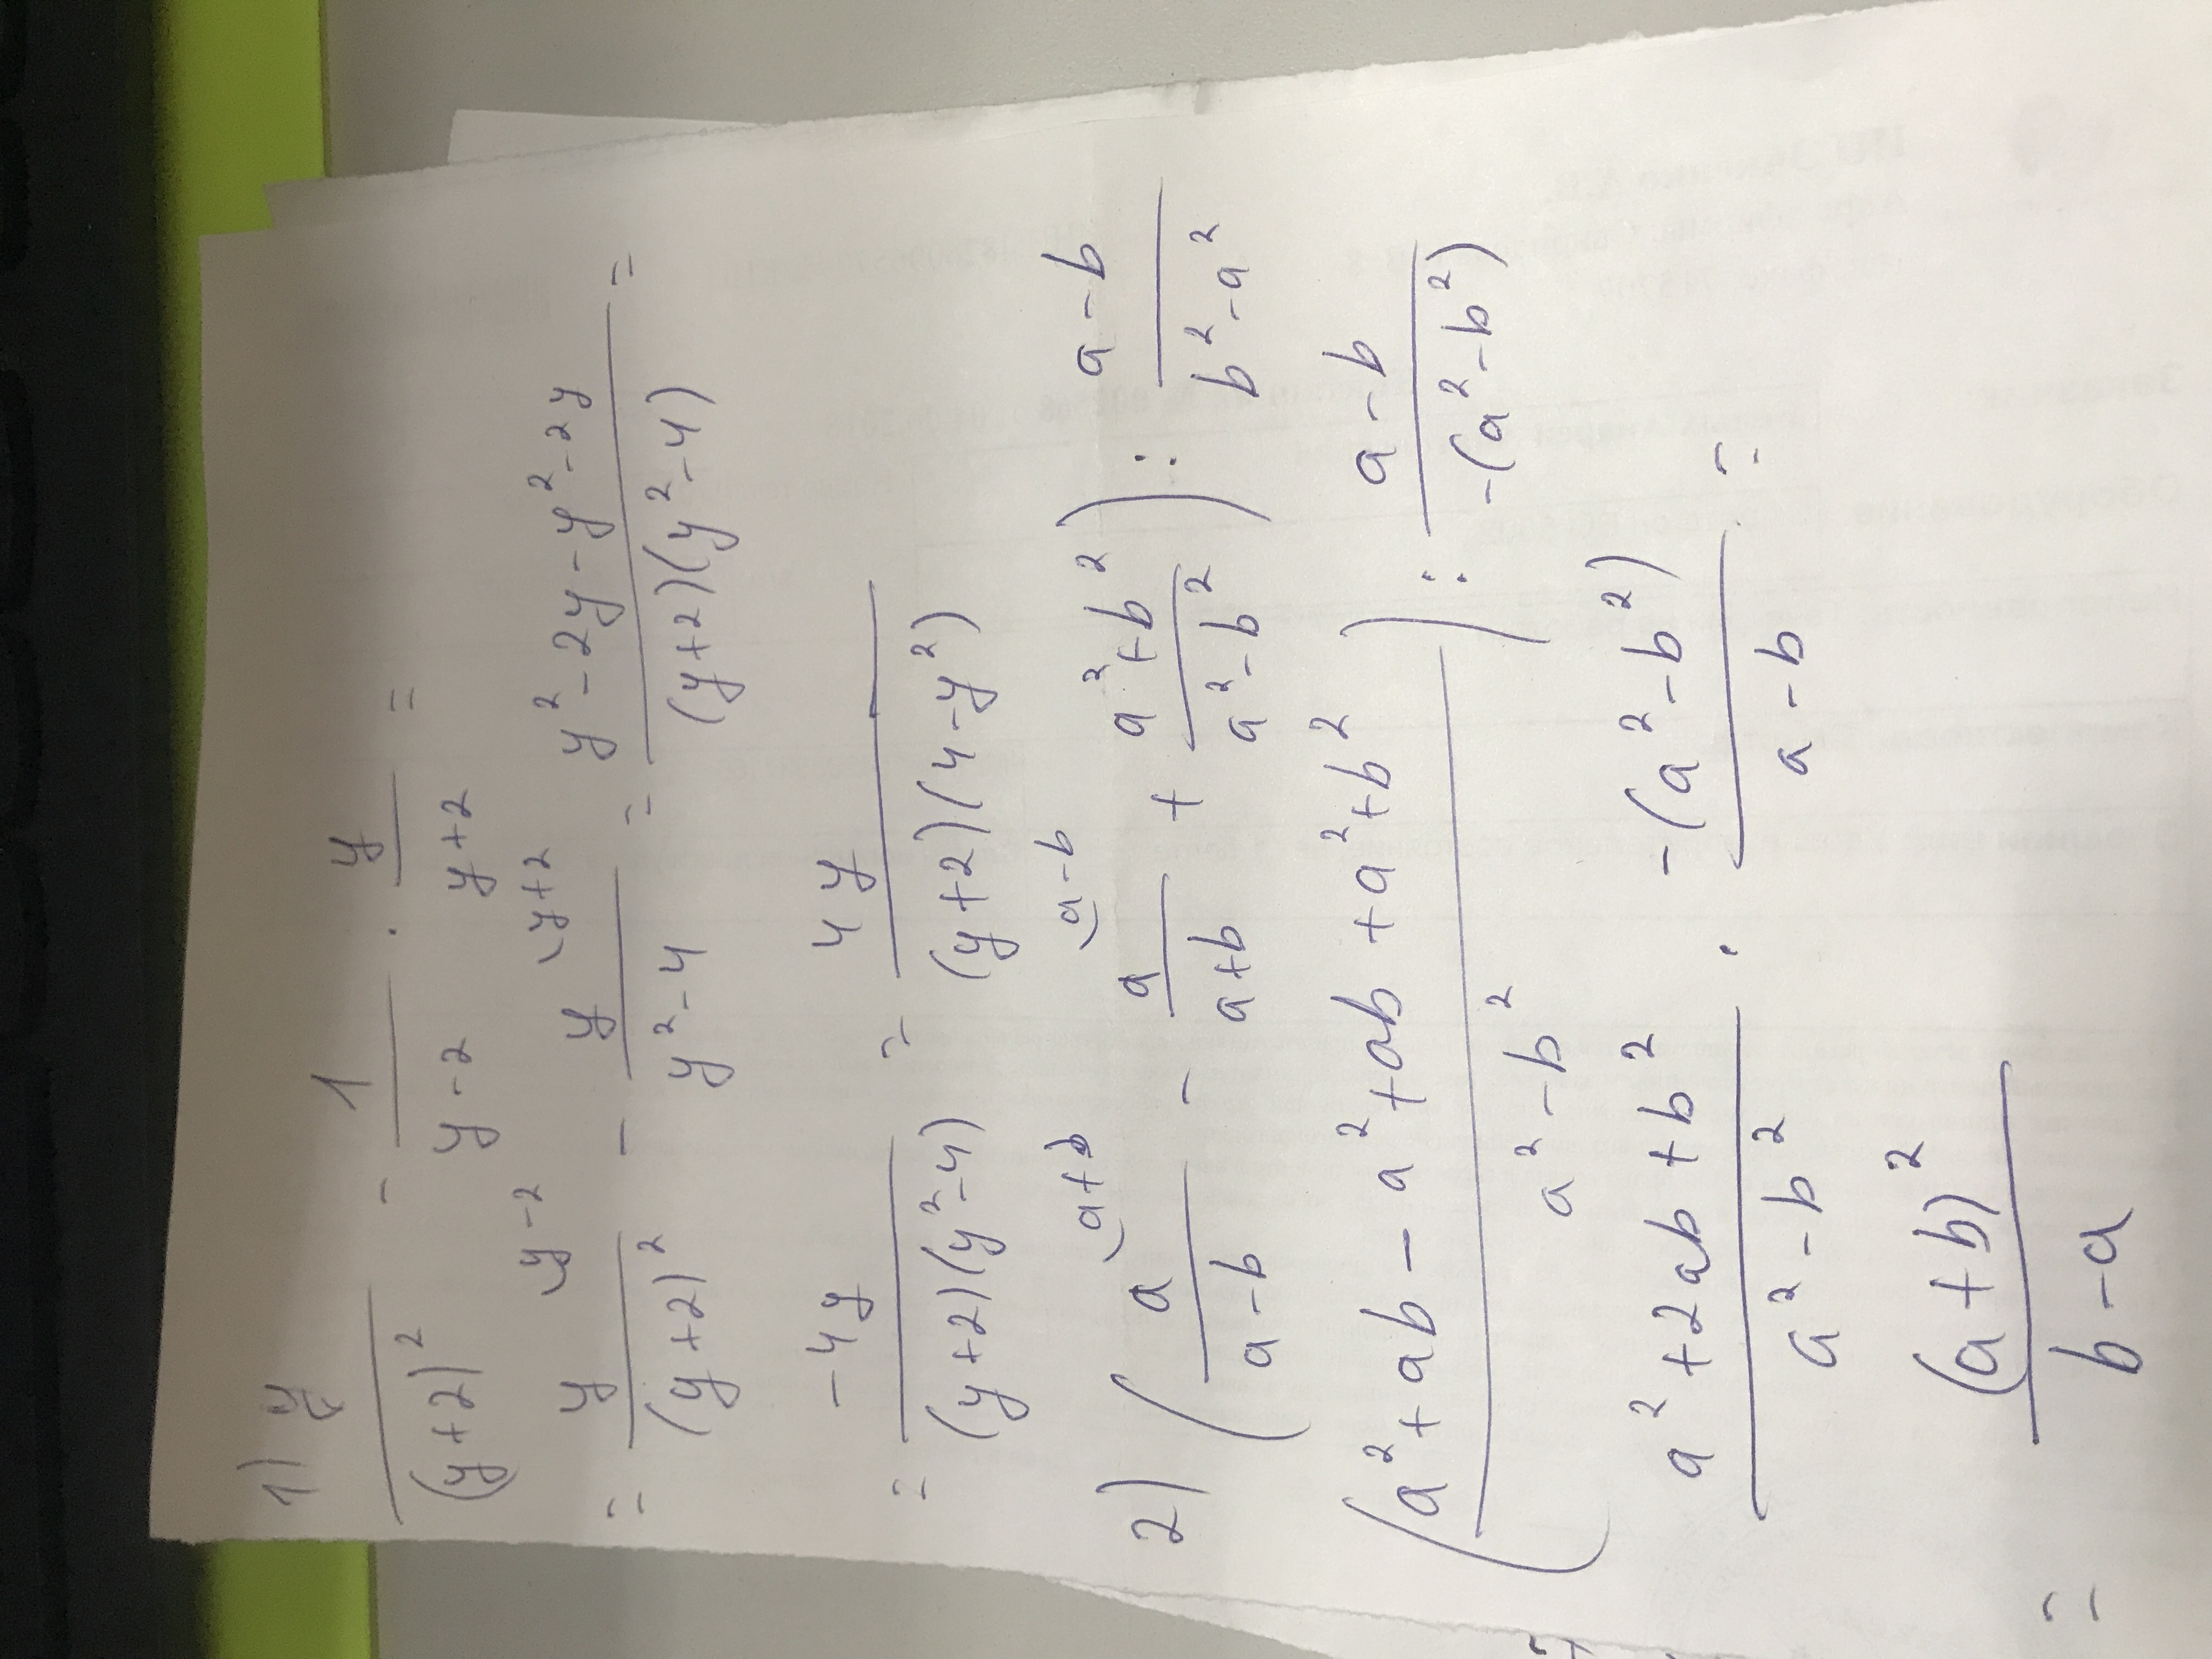 1) y/(y+2)² - 1/(y-2) · y/(y+2) =
= y/(y+2)² \y-2 - y/(y²-4) \y+2 = (y²-2y-y²-2y)/((y+2)(y²-4)) =
= -4y/((y+2)(y²-4)) = 4y/((y+2)(4-y²))
2) ( a/(a-b) \a+b - a/(a+b) \a-b + (a²+b²)/(a²-b²) ) : (a-b)/(b²-a²)
( (a²+ab-a²+ab+a²+b²)/(a²-b²) ) : (a-b)/(-(a²-b²))
(a²+2ab+b²)/(a²-b²) · (-(a²-b²))/(a-b) =
= (a+b)²/(b-a)